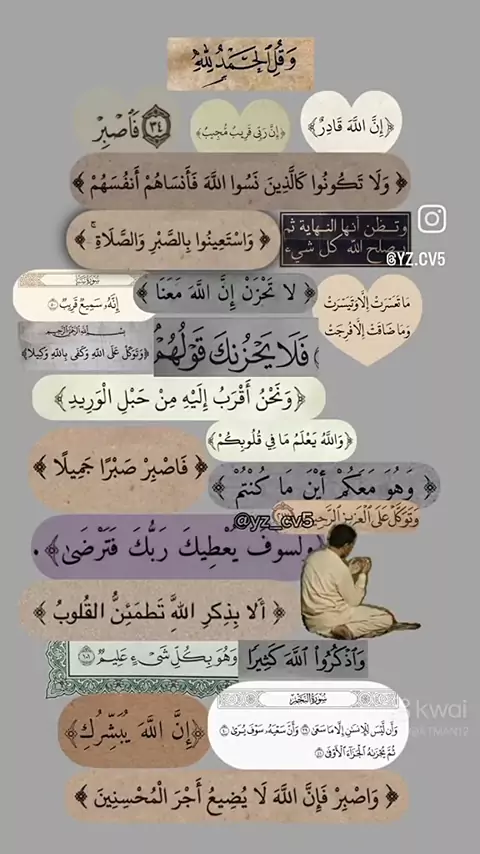 وَقُلِ الْحَمْدُ لِلَّهِ
﴿إِنَّ اللَّهَ قَادِرٌ﴾
﴿إِنَّ رَبِّي قَرِيبٌ مُّجِيبٌ﴾
٣٤ فَاصْبِرْ
﴿ وَلَا تَكُونُوا كَالَّذِينَ نَسُوا اللَّهَ فَأَنسَاهُمْ أَنفُسَهُمْ ﴾
﴿ وَاسْتَعِينُوا بِالصَّبْرِ وَالصَّلَاةِ ۚ ﴾
وتظن أنها النهاية ثم
يصلح الله كل شيء
@YZ.CV5
إِنَّهُ سَمِيعٌ قَرِيبٌ
﴿ لَا تَحْزَنْ إِنَّ اللَّهَ مَعَنَا ﴾
مَا تَعَسَّرَتْ إِلَّا وَتَيَسَّرَتْ
وَمَا ضَاقَتْ إِلَّا فُرِجَتْ
بسم الله الرحمن الرحيم
﴿وَتَوَكَّلْ عَلَى اللَّهِ وَكَفَى بِاللَّهِ وَكِيلًا﴾
فَلَا يَحْزُنكَ قَوْلُهُمْ
﴿وَنَحْنُ أَقْرَبُ إِلَيْهِ مِنْ حَبْلِ الْوَرِيدِ﴾
﴿وَاللَّهُ يَعْلَمُ مَا فِي قُلُوبِكُمْ﴾
﴿ فَاصْبِرْ صَبْرًا جَمِيلًا ﴾
﴿ وَهُوَ مَعَكُمْ أَيْنَ مَا كُنتُمْ ﴾
وَتَوَكَّلْ عَلَى الْعَزِيزِ الرَّحِيمِ
@yz_cv5
وَلَسَوْفَ يُعْطِيكَ رَبُّكَ فَتَرْضَىٰ﴾.
﴿ أَلَا بِذِكرِ اللَّهِ تَطمَئِنُّ القُلوبُ ﴾
وَاذْكُرُوا اللَّهَ كَثِيرًا
وَهُوَ بِكُلِّ شَيْءٍ عَلِيمٌ
سُورَةُ النَّجْمِ
وَأَن لَّيْسَ لِلْإِنسَانِ إِلَّا مَا سَعَىٰ ٣٩ وَأَنَّ سَعْيَهُ سَوْفَ يُرَىٰ ٤٠
ثُمَّ يُجْزَاهُ الْجَزَاءَ الْأَوْفَىٰ ٤١
﴿إِنَّ اللَّهَ يُبَشِّرُكِ﴾
kwai
﴿ وَاصْبِرْ فَإِنَّ اللَّهَ لَا يُضِيعُ أَجْرَ الْمُحْسِنِينَ ﴾